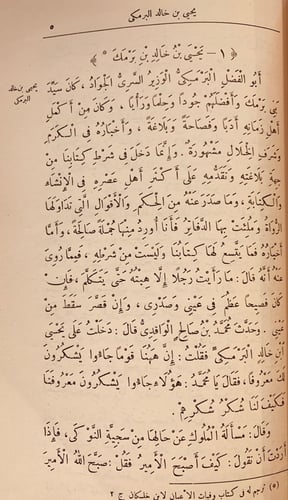 يحيى بن خالد البرمكى
٥
﴿ ١ – يَحْيَى بْنُ خَالِدِ بْنِ بَرْمَكَ * ﴾
يحيى بن خالد
البرمكى
أَبُو الْفَضْلِ الْبَرْمَكِىُّ الْوَزِيرُ السَّرِىُّ الْجَوَادُ، كَانَ سَيِّدَ
بَنِى بَرْمَكَ وَأَفْضَلَهُمْ جُوداً وَحِلْماً وَرَأْياً، وَكَانَ مِنْ أَكْمَلِ
أَهْلِ زَمَانِهِ أَدَباً وَفَصَاحَةً وَبَلَاغَةً، وَأَخْبَارُهُ فِى الْكَرَمِ
وَشَرَفِ الْخِلَالِ مَشْهُورَةٌ. وَإِنَّمَا دَخَلَ فِى شَرْطِ كِتَابِنَا مِنْ
جِهَةِ بَلَاغَتِهِ وَتَقَدُّمِهِ عَلَى أَكْثَرِ أَهْلِ عَصْرِهِ فِى الْإِنْشَاءِ
وَالْكِتَابَةِ، وَمَا صَدَرَ عَنْهُ مِنَ الْحِكَمِ وَالْأَقْوَالِ الَّتِى تَدَاوَلَهَا
الرُّوَاةُ وَمُلِئَتْ بِهَا الدَّفَاتِرُ فَأَنَا أُورِدُ مِنْهَا جُمْلَةً صَالِحَةً، وَأَمَّا
أَخْبَارُهُ فَمَا يَتَّسِعُ لَهَا كِتَابُنَا وَلَيْسَتْ مِنْ شَرْطِهِ، فَمِمَّا رُوِىَ
عَنْهُ أَنَّهُ قَالَ: مَا رَأَيْتُ رَجُلاً إِلَّا هِبْتُهُ حَتَّى يَتَكَلَّمَ، فَإِنْ
كَانَ فَصِيحاً عَظُمَ فِى عَيْنِى وَصَدْرِى، وَإِنْ قَصَّرَ سَقَطَ مِنْ
عَيْنِى. وَحَدَّثَ مُحَمَّدُ بْنُ صَالِحٍ الْوَاقِدِىُّ قَالَ: دَخَلْتُ عَلَى يَحْيَى
ابْنِ خَالِدٍ الْبَرْمَكِىِّ فَقُلْتُ: إِنَّ هَهُنَا قَوْماً جَاءُوا يَشْكُرُونَ
لَكَ مَعْرُوفًا، فَقَالَ يَا مُحَمَّدُ: هَؤُلَاءِ جَاءُوا يَشْكُرُونَ مَعْرُوفَنَا
فَكَيْفَ لَنَا شُكْرُ شُكْرِهِمْ.
وَقَالَ: مَسْأَلَةُ الْمُلُوكِ عَنْ حَالِهَا مِنْ سَجِيَّةِ النَّوْكَى، فَإِذَا
أَرَدْتَ أَنْ تَقُولَ: كَيْفَ أَصْبَحَ الْأَمِيرُ فَقُلْ: صَبَّحَ اللهُ الْأَمِيرَ
(*) ترجم له فى كتاب وفيات الأعيان لابن خلكان ج ٢